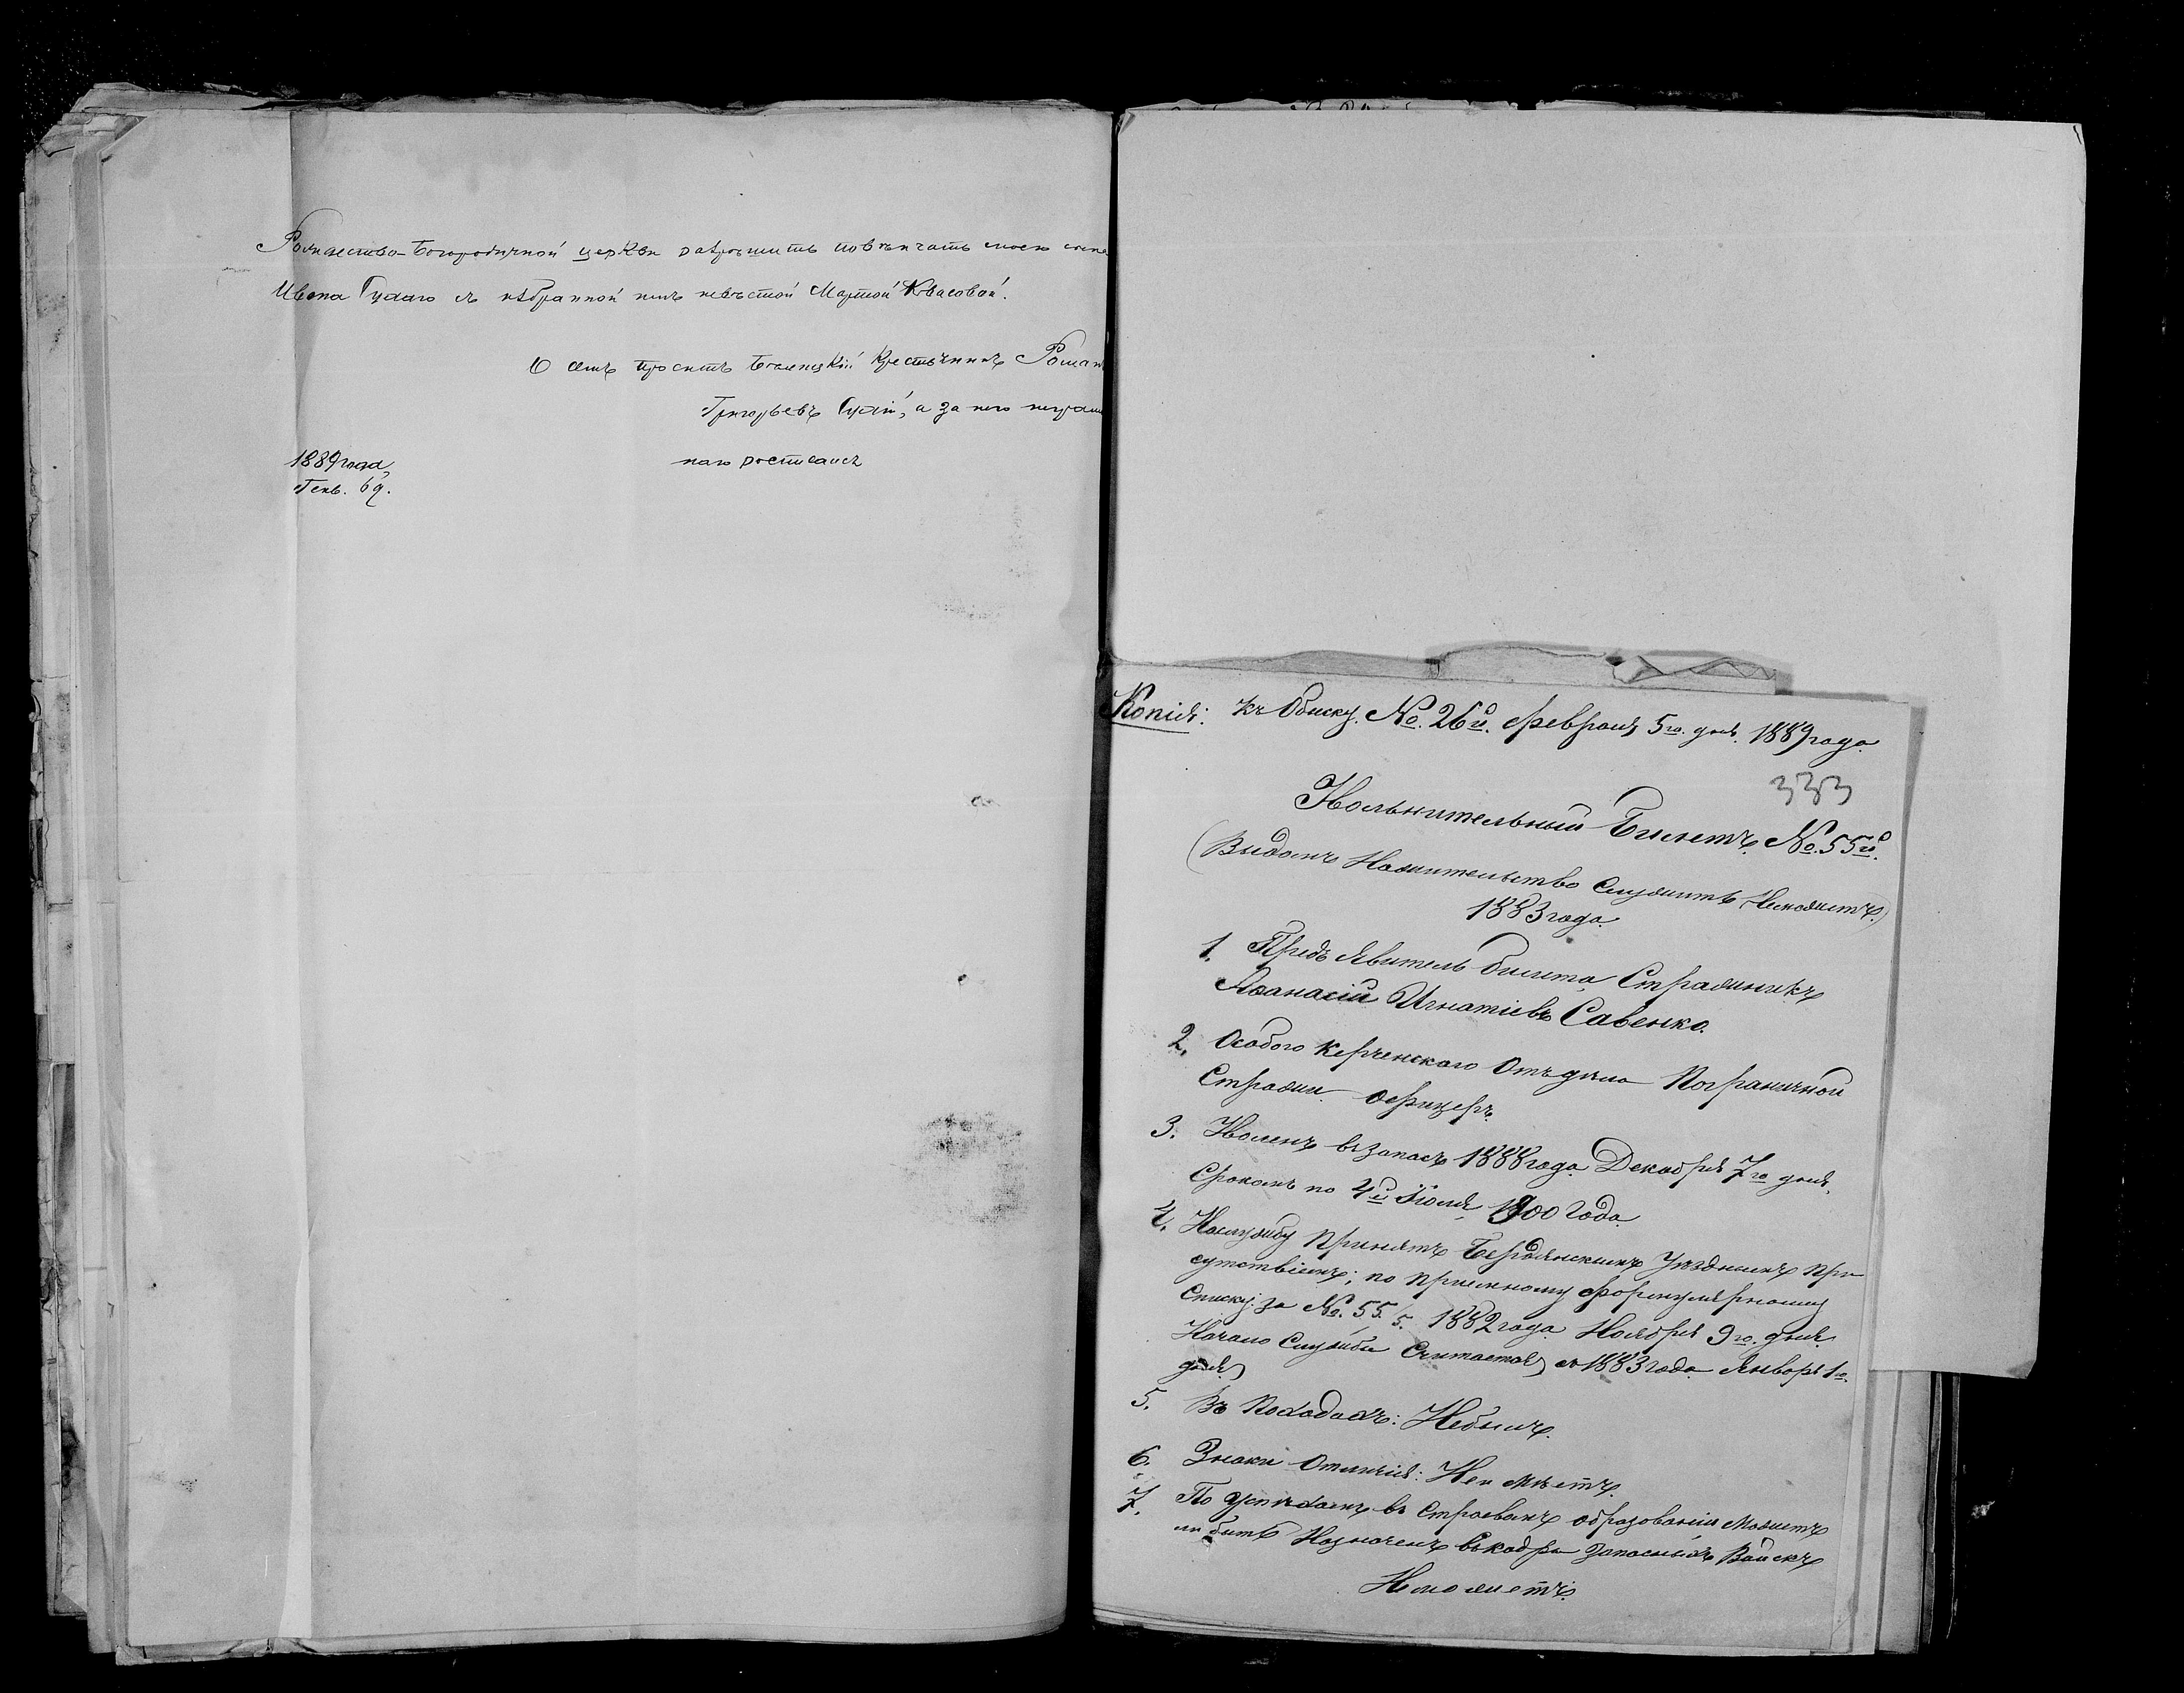 Рождество-Богородичной церкви разрешить повѣнчать моего сына
Ивана Гудзю съ избранной имъ невѣстой Марѳой Квасовой.
О семъ проситъ крестьянинъ Романъ
Григорьевъ а за него неграмот
наго росписался
1889 года,
Генв. 69.
Копія: къ Обыску. № 26й. Февраля 5го. дня. 1889 года.
333
Увольнительный Билетъ. № 55й.
(Видомъ Нажительство Служить Неможетъ.)
1883 года.
1. Предъявитель билета Стражникъ
Афанасій Игнатіевъ Савенко.
2. Особого Керченскаго Отъдѣла Пограничной
Стражи. офицеръ.
3. Уволенъ въ запасъ 1888 года. Декабря 7го дня.
Срокомъ по 4й Июля 1900 Года.
4. Наслужбу принятъ Бердянскимъ Уѣзднымъ при
сутствіемъ; по приемному формулярному
Списку: за № 55./5. 1882 года Ноября 9го. дня.
Начало Службы Считается съ 1883 года Январь 1го.
дня.
5. Въ Походахъ: Небылъ.
6. Знаки Отличія: Неимѣетъ.
7. По Успѣхамъ въ Строевомъ образованіи Можетъ
ли быть Назначенъ въкадры Запасныхъ Войскъ
Неможетъ.